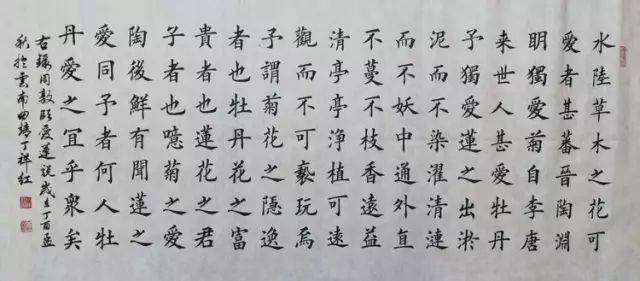 水陸草木之花可
愛者甚蕃晉陶淵
明獨愛菊自李唐
来世人甚愛牡丹
予獨愛蓮之出淤
泥而不染濯清漣
而不妖中通外直
不蔓不枝香遠益
清亭亭淨植可遠
觀而不可褻玩焉
予謂菊花之隱逸
者也牡丹花之富
貴者也蓮花之君
子者也噫菊之愛
陶後鮮有聞蓮之
愛同予者何人牡
丹愛之冝乎衆矣
右錄周敦頤愛蓮説歲在丁酉孟
秋於雲南曲靖丁祥红